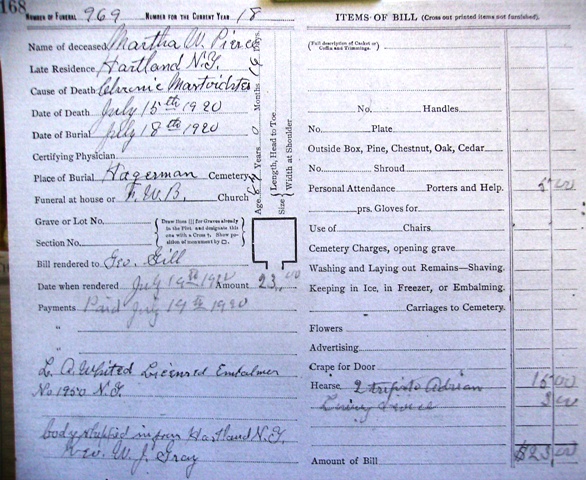 168
NUMBER OF FUNERAL 969 NUMBER FOR THE CURRENT YEAR 18
Name of deceased Martha W. Pierce
Late Residence Hartland N.Y.
Cause of Death Chronic
Date of Death July 15th 1920
Date of Burial July 18th 1920
Certifying Physician
Place of Burial Hagerman Cemetery
Funeral at house or F. W. B. Church
Age Years 0 Months Days
Size { Length, Head to Toe
Width at Shoulder
Grave or Lot No.
Section No.
{ Draw lines ||| for Graves already in the Plot and designate this one with a Cross †. Show position of monument by □. }
Bill rendered to Geo. Gill
Date when rendered July 19th 1920 Amount 23.00
Payments Paid July 19th 1920
"
"
L. A. Whited Licensed Embalmer
No 1950 N.Y.
body shipped in from Hartland N.Y.
Rev. W. J. Gray
ITEMS OF BILL (Cross out printed items not furnished).
(Full description of Casket or Coffin and Trimmings.)
No. Handles
No. Plate
Outside Box, Pine, Chestnut, Oak, Cedar
No. Shroud
Personal Attendance Porters and Help. 5 00
prs. Gloves for
Use of Chairs
Cemetery Charges, opening grave
Washing and Laying out Remains—Shaving.
Keeping in Ice, in Freezer, or Embalming.
Carriages to Cemetery.
Flowers
Advertising
Crape for Door
Hearse 2 trips to Adrian 15 00
3 00
Amount of Bill $23 00